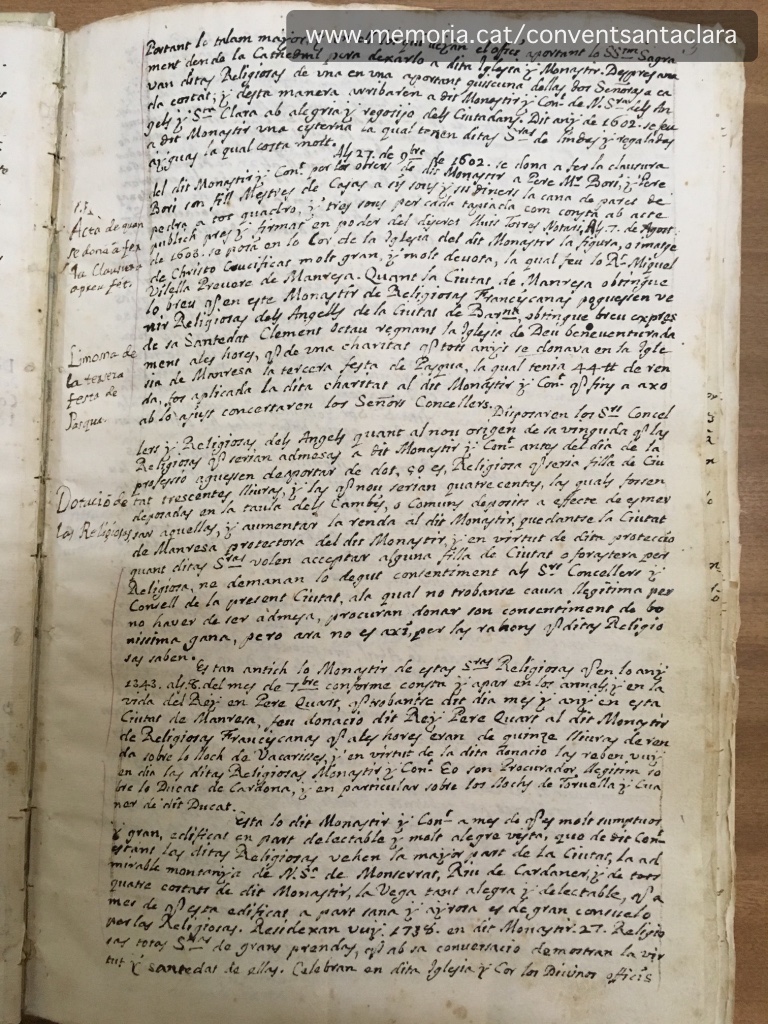 www.memoria.cat/conventsantaclara
Portant lo talam major
ment den de la Cathedral pera dexarlo a dita Iglesia y Monastir. Despres ana
van ditas Religiosas de una en una aportant quiscuna dellas dos Señoras a ca
da costat; y desta manera arribaren a dit Monestir y Conᵗ. de N. Sʳᵃ dels An
gels y Sᵗᵃ Clara ab alegria y regosijo dels Ciutadans. Dit any de 1602. se feu
a dit Monastir una cisterna la qual tenen ditas Sʳᵃˢ de lindes y regalades
ayguas la qual costa molt.
Als 27. de 9bre de 1602. se dona a fer la clausura
del dit Monastir y Conᵗ. per los obrers de dit Monastir a Pere Mʳ Bori, y Pere
Bori son fill Mestres de Casas a sis sous y sis diners la cana de paret de
pedra a tot quadro, y tres sous per cada tapiada com consta ab acte
publich pres y firmat en poder del discret Lluis Torres Notari, Als 7. de Agost
de 1608. se posà en lo Cor de la Iglesia del dit Monastir la figura, o imatge
de Christo Crucificat molt gran, y molt devota, la qual feu lo Rᵗ. Miquel
Vilella Prevere de Manresa. Quant la Ciutat de Manresa obtingue
lo breu qᵉ en este Monastir de Religiosas Franciscanas poguessen ve
nir Religiosas dels Angells de la Ciutat de Barⁿᵃ, obtingue breu expres
de sa Santedat Clement Octau regnant la Iglesia de Deu beneventurada
ment ales hores, qᵉ de una charitat qᵉ tots anys se donava en la Igle
sia de Manresa la tercera festa de Pasqua, la qual tenia 44 ℔ de ren
da, fos aplicada la dita charitat al dit Monastir y Conᵗ qᵉ fins a axo
ab lo ajust concertaren los Señors Concellers. Disposaren los Sʳˢ Concel
lers y Religiosas dels Angels quant al nou origen de sa vinguda qᵉ las
Religiosas qᵉ serian admesas a dit Monastir y Conᵗ antes del dia de la
professio aguessen de portar de dot, ço es, Religiosa qᵉ seria filla de Ciu
tat trescentes lliuras, y las qᵉ nou serian quatre centas, las quals fossen
deposadas en la taula dels Cambis, o Comuns deposits a effecte de esmer
sar aquellas, y aumentar la renda al dit Monastir, quedantse la Ciutat
de Manresa protectora del dit Monastir, y en virtut de dita proteccio
quant ditas Sʳᵃˢ volen acceptar alguna filla de Ciutat o forastera per
Religiosa, ne demanan lo degut consentiment als Sʳˢ Concellers y
Consell de la present Ciutat, ala qual no trobanse causa llegitima per
no haver de ser admesa, procuran donar son consentiment de bo
nissima gana, pero ara no es axi, per las rahons qᵉ ditas Religio
sas saben.
Es tan antich lo Monastir de estas Sʳᵃˢ Religiosas qᵉ en lo any
1343. als 8. del mes de 7bre conforme consta y apar en los annals, y en la
vida del Rey en Pere Quart, qᵉ trobantse dit dia mes y any en esta
Ciutat de Manresa, feu donació dit Rey Pere Quart al dit Monastir
de Religiosas Franciscanas qᵉ ales hores eran de quinze lliuras de ren
da sobre lo lloch de Vacarisses, y en virtut de la dita donacio las reben vuy
en dia las ditas Religiosas Monastir y Conᵗ. Eo son Procurador llegitim so
bre lo Ducat de Cardona, y en particular sobre los llochs de Torruella y Gua
ner de dit Ducat.
Esta lo dit Monastir y Conᵗ a mes de qᵉ es molt sumptuos
y gran, edificat en part delectable y molt alegre vista, que de dit Conᵗ
estant las ditas Religiosas vehen la mayor part de la Ciutat, la ad
mirable montanya de N. Sᵃ de Monserrat, Riu de Cardaner, y de tots
quatre costats de dit Monastir, la Vega tant alegra y delectable, qᵉ a
mes de qᵉ esta edificat, a part sana y ayrosa es de gran consuelo
per las Religiosas. Residexan vuy 1738. en dit Monastir 27. Religio
sas totas Sʳᵃˢ de grans prendas, qᵉ ab sa conversacio demostran la vir
tut y santedat de ellas. Celebran en dita Iglesia y Cor los Divinos officis
Acta de quan
se dona a fer
la Clausura
a preu fet.
Limosna de
la tercera
festa de
Pasqua.
Dotació de
las Religiosas